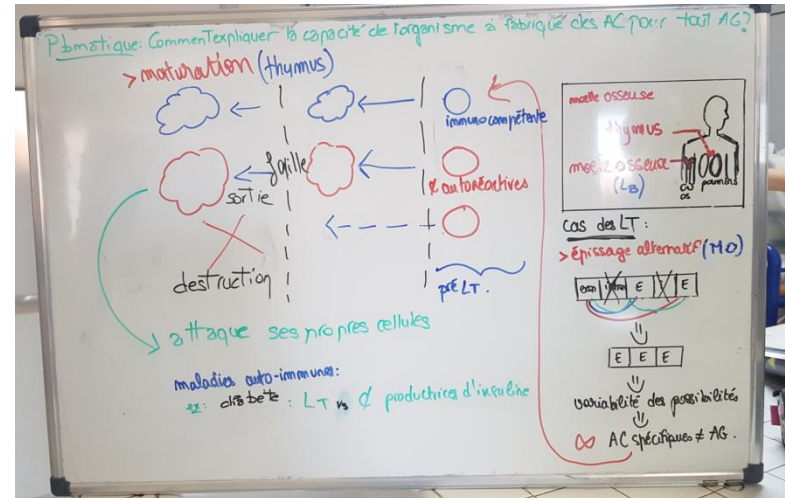 Pbmatique: Comment expliquer la capacité de l'organisme à fabriqué des AC pour tout AG?
> maturation (thymus)
immunocompétente
faille
sortie
¢ autoréactives
destruction
pré LT.
attaque ses propres cellules
maladies auto-immunes:
ex: diabète : LT vs ¢ productrices d'insuline
moelle osseuse
thymus
moelle osseuse
(LB)
os
poumons
cas des LT :
> épissage alternatif (MO)
exon intron E E
E E E
variabilité des possibilités
∞ AC spécifiques ≠ AG.